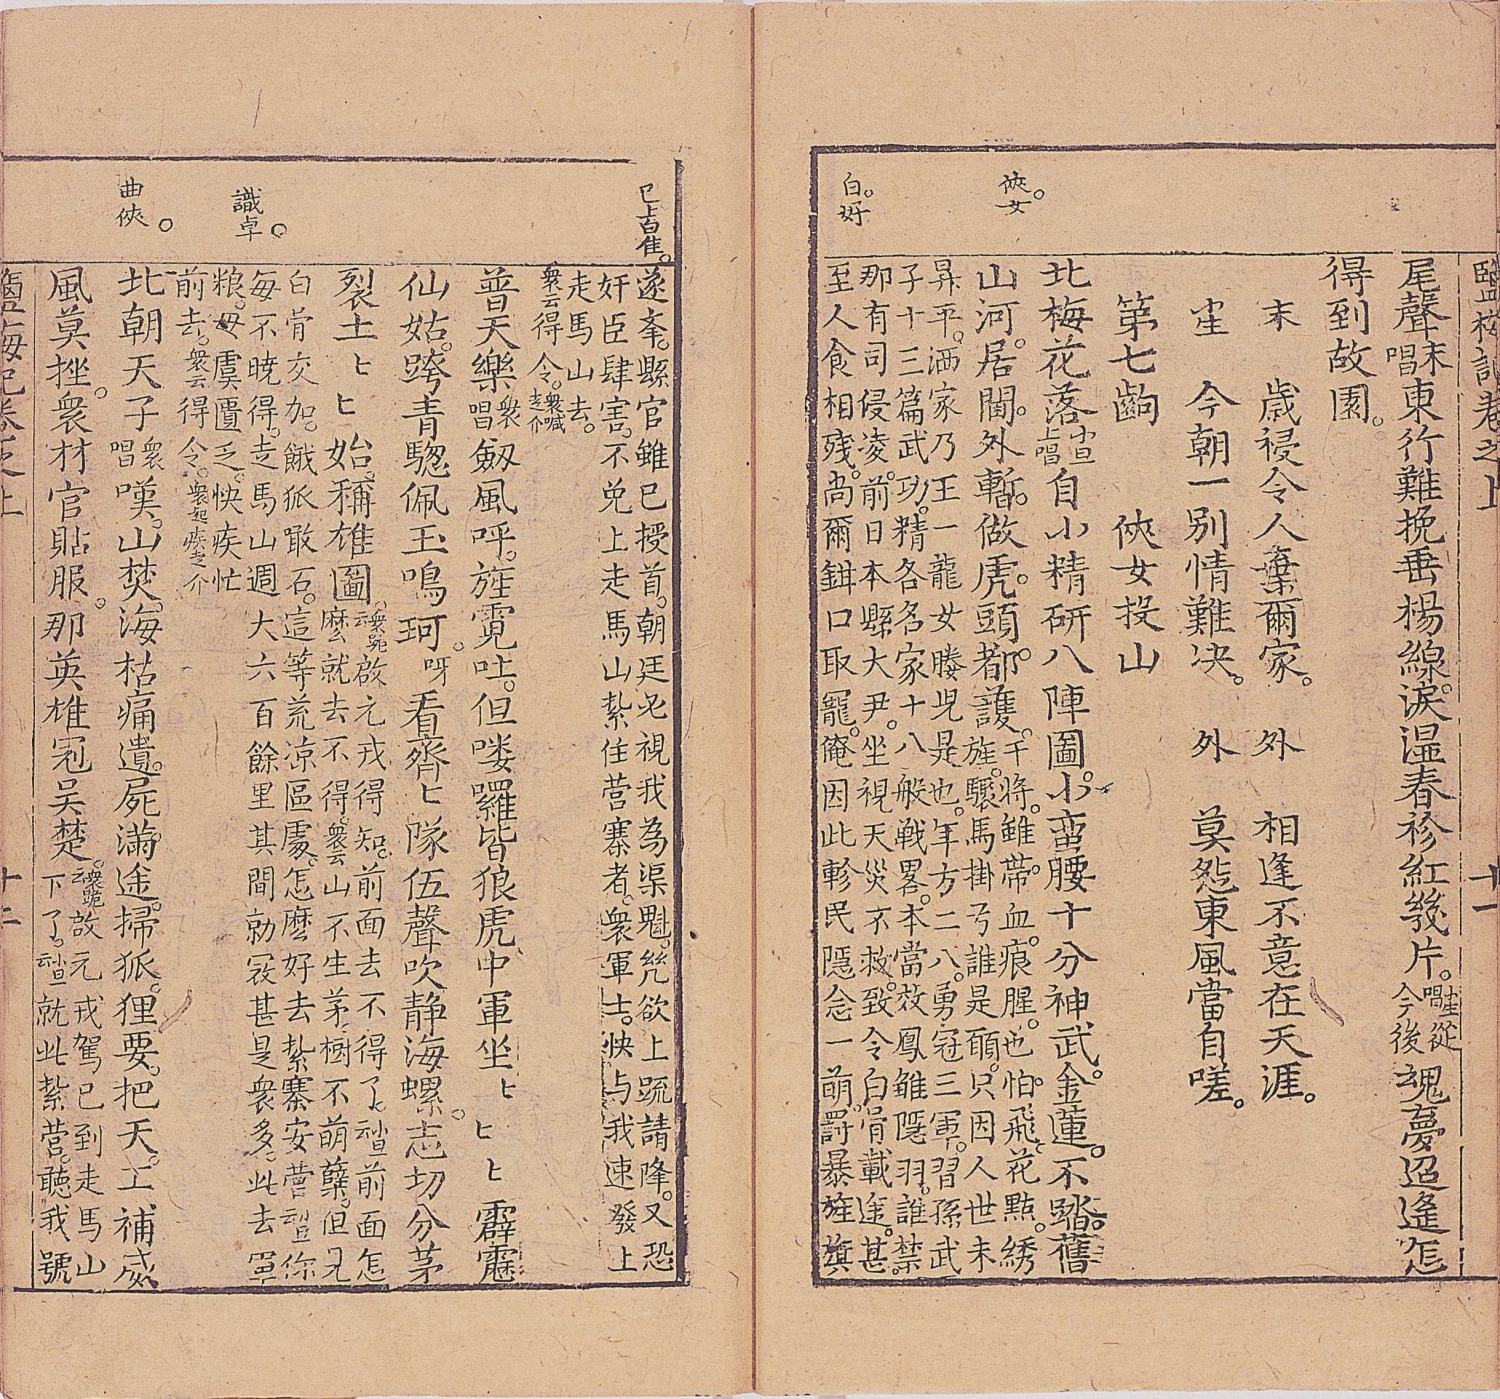 鹽梅記卷之上
十一
尾聲末唱東行難挽垂楊線。淚溼春衫紅幾片。㞷唱從今後魂夢迢遙怎
得到故園。
末　歲祲令人棄爾家。　外　相逢不意在天涯。
㞷　今朝一別情難决。　外　莫怨東風當自嗟。
第七齣　　俠女投山
俠女。
北梅花落小旦上唱自小精研八陣圖。小蛮腰十分神武。金蓮。不踏。舊
山河。居閫。外暫。做虎。頭。都。護。干將。雖帶。血。痕。腥。也。怕。飛。花點。綉
旌。驟馬掛弓誰是頤。只因人世未
昇平。洒家乃王一龍女媵児是也。年方二八。勇冠三軍。習孫武
子十三篇武功。精各名家十八般戦畧。本當效鳳雖隱羽。誰禁
那有司侵凌。前日本縣大尹。坐視天災不救。致令白骨載途。甚
至人食相殘。尚爾餌口取寵。俺因此軫民隱念一萌。罸暴旌旗
白。好
已上白隹。
遂奉。縣官雖已授首。朝廷必視我為渠魁。幾欲上疏請降。又恐
奸臣肆害。不免上走馬山紮住营寨者。衆軍士。快与我速發上
走馬山去。
衆云得令。衆喊走介
普天樂衆唱劔風呼。旌霓吐。但喽囉皆狼虎。中軍坐匕匕匕霹靂
仙姑。跨青驄佩玉鳴珂。呀看齊匕隊伍聲吹静海螺。志切分茅
裂土匕匕始。稱雄圖。衆跪云啟元戎得知。前面去不得了。小旦云前面怎
麼就去不得。衆云山不生茅樹不萌孽。但見
白骨交加。餓狐啖石。這等荒凉區處。怎麼好去紮寨安营小旦云你
每不曉得。走馬山週大六百餘里其間勦冦甚是衆多。此去單
識卓。
粮。毋虞匱乏。快疾忙
前去。衆云得令。衆起疾走介
北朝天子衆唱嘆。山焚。海枯痛遺。屍满途。掃狐。狸要。把天。工補。歲
曲俠。
風莫挫。衆材官貼服。那英雄冠吴楚。衆跪云啟元戎駕已到走馬山
下了。小旦云就此紮营。聽我號
鹽梅記卷之上
十二